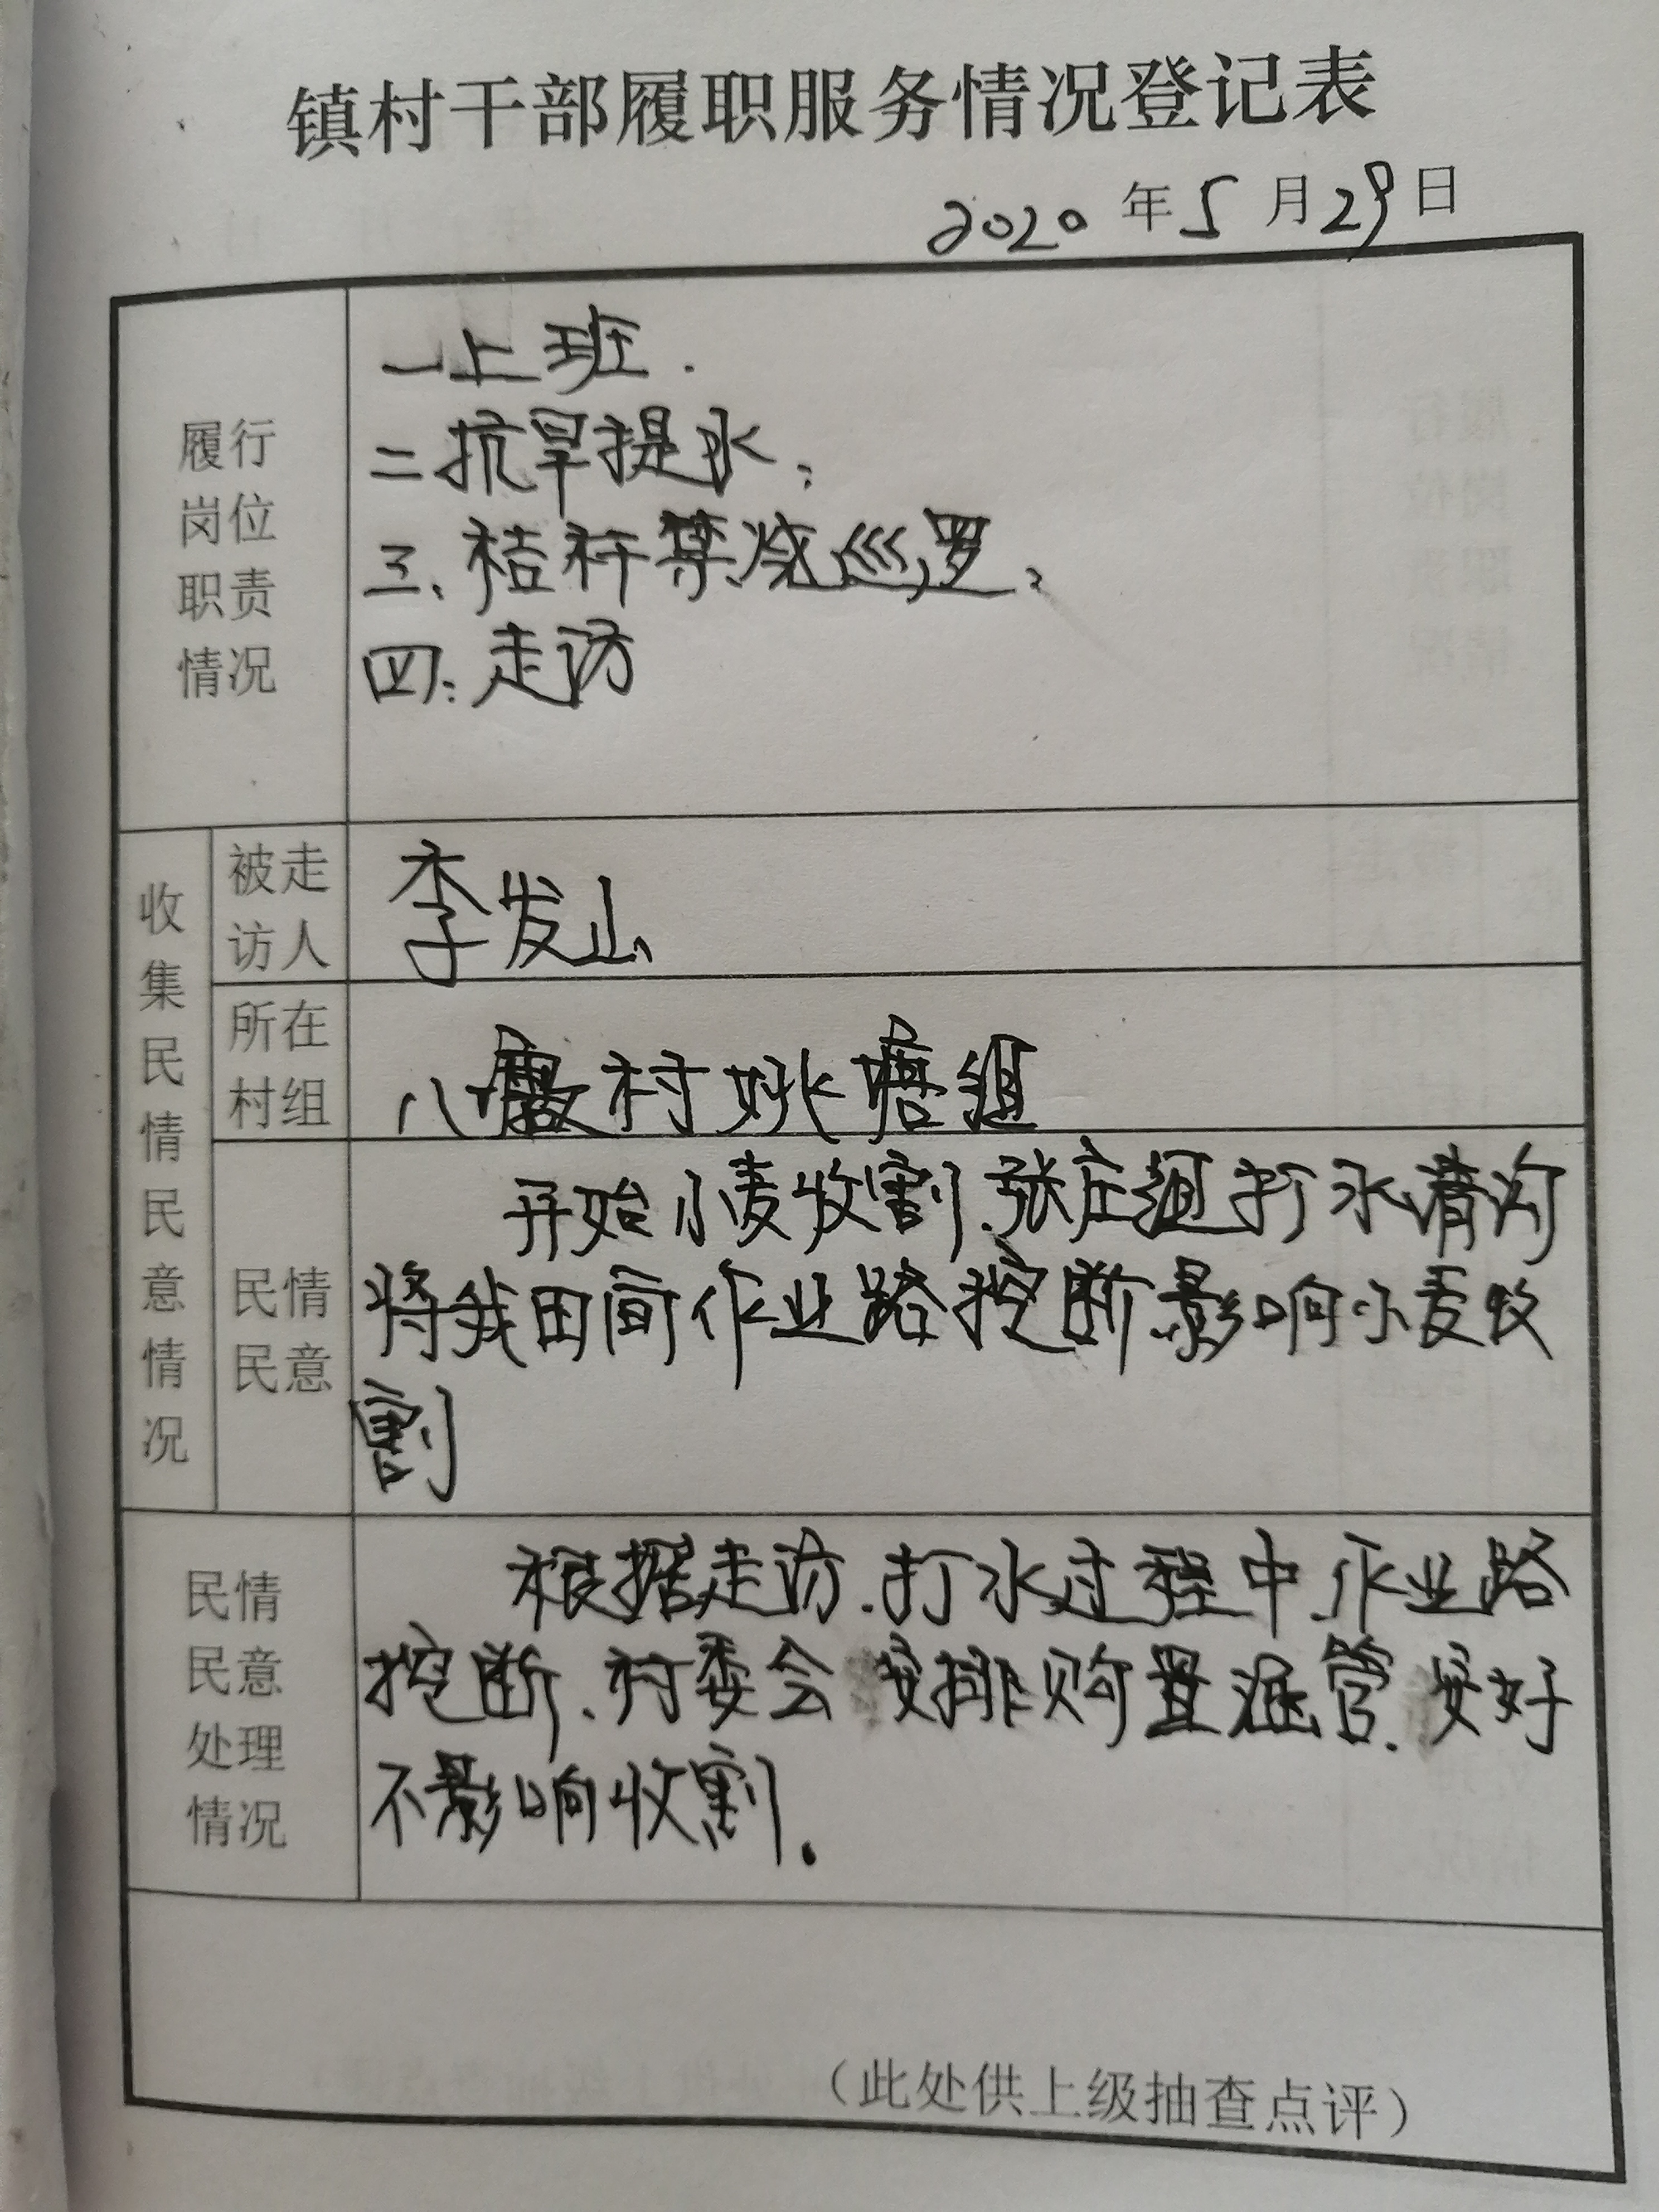 镇村干部履职服务情况登记表
2020年5月29日
履行
岗位
职责
情况
一上班.
二抗旱提水;
三、秸秆禁烧巡罗;
四:走访
收集民情民意情况
被走
访人
李发山
所在
村组
八村姚塘组
民情
民意
开始小麦收割、张庄组打水清沟
将我田间作业路挖断影响小麦收
割
民情
民意
处理
情况
根据走访.打水过程中.作业路
挖断、村委会安排购置涵管.安好
不影响收割.
(此处供上级抽查点评)